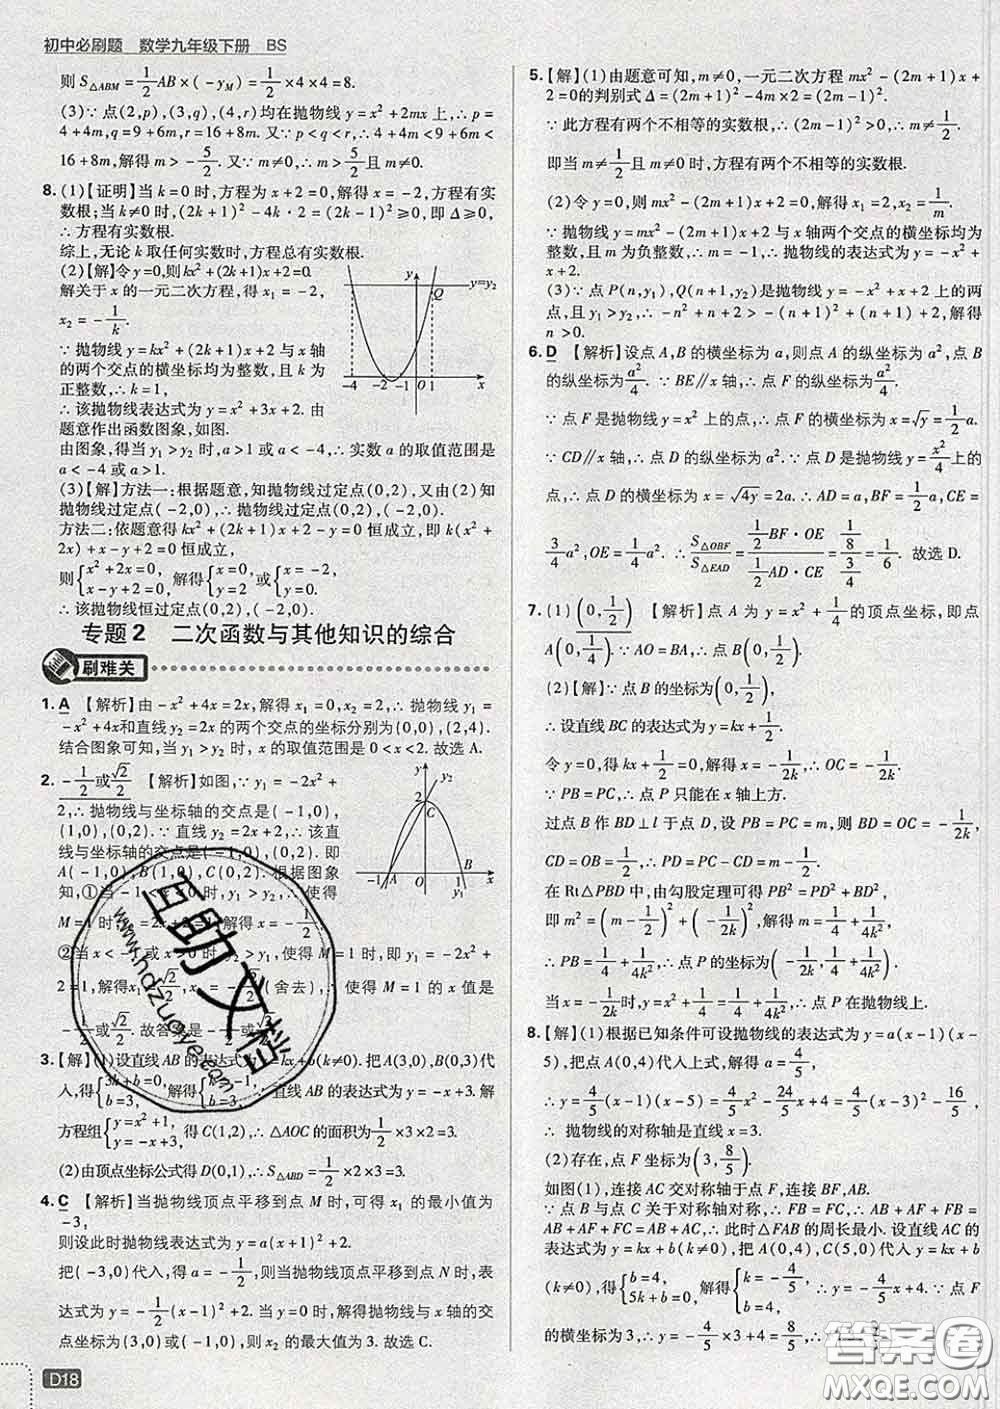 初中必刷题 数学九年级下册 BS
则 S△ABM = 1/2 AB × (-yM) = 1/2 × 4 × 4 = 8.
(3)∵ 点(2,p),(3,q),(4,r)均在抛物线 y = x² + 2mx 上,∴ p =
4+4m,q=9+6m,r=16+8m. 又∵ p<q<r,∴ 4+4m<9+6m<
16+8m,解得 m > -5/2. 又∵ m≠0,∴ m > 5/2 且 m≠0.
8. (1)【证明】当 k=0 时,方程为 x+2=0,解得 x=-2,方程有实
数根;当 k≠0 时,(2k+1)²-4k·2=(2k-1)²≥0,即 Δ≥0,
∴ 方程有实数根.
综上,无论 k 取任何实数时,方程总有实数根.
(2)【解】令 y=0,则 kx²+(2k+1)x+2=0.
解关于 x 的一元二次方程,得 x₁=-2,
x₂ = -1/k.
∵ 抛物线 y=kx²+(2k+1)x+2 与 x 轴
的两个交点的横坐标均为整数,且 k 为
正整数,∴ k=1.
∴ 该抛物线表达式为 y=x²+3x+2. 由
题意作出函数图象,如图.
由图象,得当 y₁>y₂ 时,a>1 或 a<-4,∴ 实数 a 的取值范围是
a<-4 或 a>1.
(3)【解】方法一:根据题意,知抛物线过定点(0,2),又由(2)知
抛物线过定点(-2,0),∴ 抛物线过定点(0,2),(-2,0).
方法二:依题意得 kx²+(2k+1)x+2-y=0 恒成立,即 k(x²+
2x)+x-y+2=0 恒成立,
则{x²+2x=0, x-y+2=0, 解得{x=0, y=2 或{x=-2, y=0.
∴ 该抛物线恒过定点(0,2),(-2,0).
y
y=y₂
Q
-4 -1 O 1 x
专题2 二次函数与其他知识的综合
刷难关
1. A 【解析】由 -x²+4x=2x,解得 x₁=0,x₂=2,∴ 抛物线 y₁=
-x²+4x和直线 y₂=2x 的两个交点的坐标分别为(0,0),(2,4).
结合图象可知,当 y₁>y₂ 时,x 的取值范围是 0<x<2. 故选 A.
2. -1/2 或 √2/2 【解析】如图,∵ y₁=-2x²+
2,∴ 抛物线与坐标轴的交点是(-1,0),
(1,0),(0,2). ∵ 直线 y₂=2x+2,∴ 该直
线与坐标轴的交点是(-1,0),(0,2). 即
A(-1,0),B(1,0),C(0,2). 根据图象
知,①当 -1<x<0 时,y₁>y₂,∴ 使得
M=1 时
②当 x<
2=1,解得x₁=√2/2 (舍去),∴ 使得 M=1 的 x 值是
-1/2 或 √2/2. 故答案是
y y₂
2
C
-1 A O B x
y₁
3. 【解】(1)设直线 AB 的表达式为 y=kx+b(k≠0). 把 A(3,0),B(0,3)代
入,得{3k+b=0, b=3, 解得{k=-1, b=3. ∴ 直线 AB 的表达式为 y=-x+3. 解
方程组{y=x²+1, y=-x+3, 得 C(1,2),∴ △AOC 的面积为 1/2×3×2=3.
(2)由顶点坐标公式得 D(0,1),∴ S△ABD = 1/2×2×3=3.
4. C 【解析】当抛物线顶点平移到点 M 时,可得 x₁ 的最小值为
-3,
则设此时抛物线表达式为 y=a(x+1)²+2.
把(-3,0)代入,得 a=-1/2,则当抛物线顶点平移到点 N 时,表
达式为 y=-1/2(x-1)²+2. 令 y=0 时,解得抛物线与 x 轴的交
点坐标为(3,0)或(-1,0),则 x₂ 的最大值为 3. 故选 C.
D18
5. 【解】(1)由题意可知,m≠0,一元二次方程 mx²-(2m+1)x+
2=0的判别式 Δ=(2m+1)²-4m×2=(2m-1)².
∵ 此方程有两个不相等的实数根,∴ (2m-1)²>0,∴ m≠1/2.
即当 m≠1/2 且 m≠0 时,方程有两个不相等的实数根.
(2)令 y=0,则 mx²-(2m+1)x+2=0,解得 x₁=2,x₂=1/m.
∵ 抛物线 y=mx²-(2m+1)x+2 与 x 轴两个交点的横坐标均为
整数,且 m 为负整数,∴ m=-1,∴ 抛物线的表达式为 y=-x²+
x+2.
(3)∵ 点 P(n,y₁),Q(n+1,y₂)是抛物线 y=-x²+x+2 上的两
点,且 y₁>y₂,∴ -n²+n+2>-(n+1)²+(n+1)+2,解得
n>0.
6. D 【解析】设点 A,B 的横坐标为 a,则点 A 的纵坐标为 a²,点 B
的纵坐标为 a²/4. ∵ BE∥x 轴,∴ 点 F 的纵坐标为 a²/4.
∵ 点 F 是抛物线 y=x² 上的点,∴ 点 F 的横坐标为 x=√y=1/2 a.
∵ CD∥x 轴,∴ 点 D 的纵坐标为 a². ∵ 点 D 是抛物线 y=x²/4 上的
点,∴ 点 D 的横坐标为 x=√4y=2a. ∴ AD=a,BF=1/2 a,CE=
3/4 a²,OE=1/4 a². ∴ S△OBF/S△EAD = (1/2 BF·OE)/(1/2 AD·CE) = (1/8)/(3/4) = 1/6. 故选 D.
7. (1)(0,1/2) 【解析】点 A 为 y=x²+1/4 的顶点坐标,即点
A(0,1/4). ∵ AO=BA,∴ 点 B(0,1/2).
(2)【解】∵ 点 B 的坐标为(0,1/2),
∴ 设直线 BC 的表达式为 y=kx+1/2.
令 y=0,得 kx+1/2=0,解得 x=-1/2k,∴ OC=-1/2k.
∵ PB=PC,∴ 点 P 只能在 x 轴上方.
过点 B 作 BD⊥l 于点 D,设 PB=PC=m,则 BD=OC=-1/2k,
CD=OB=1/2,∴ PD=PC-CD=m-1/2.
在 Rt△PBD 中,由勾股定理可得 PB²=PD²+BD²,
即 m²=(m-1/2)²+(-1/2k)²,解得 m=1/4+1/4k².
∴ PB=1/4+1/4k²,∴ 点 P 的坐标为(-1/2k,1/4+1/4k²).
当 x=-1/2k 时,y=1/4k²+1/4=1/4+1/4k²,∴ 点 P 在抛物线上.
8. 【解】(1)根据已知条件可设抛物线的表达式为 y=a(x-1)(x-
5),把点 A(0,4)代入上式,解得 a=4/5,
∴ y=4/5(x-1)(x-5)=4/5x²-24/5x+4=4/5(x-3)²-16/5,
∴ 抛物线的对称轴是直线 x=3.
(2)存在,点 F 坐标为(3,8/5).
如图(1),连接 AC 交对称轴于点 F,连接 BF,AB.
∵ 点 B 与点 C 关于对称轴对称,∴ FB=FC,∴ AB+AF+FB=
AB+AF+FC=AB+AC,∴ 此时△FAB 的周长最小. 设直线 AC 的
表达式为 y=kx+b(k≠0),把 A(0,4),C(5,0)代入 y=kx+b
(k≠0),得{b=4, 5k+b=0, 解得{k=-4/5, b=4, ∴ y=-4/5x+4. ∵ 点 F
的横坐标为 3,∴ y=-4/5×3+4=
互助文档
www.hdzuoye.com
答案圈
MXQE.COM